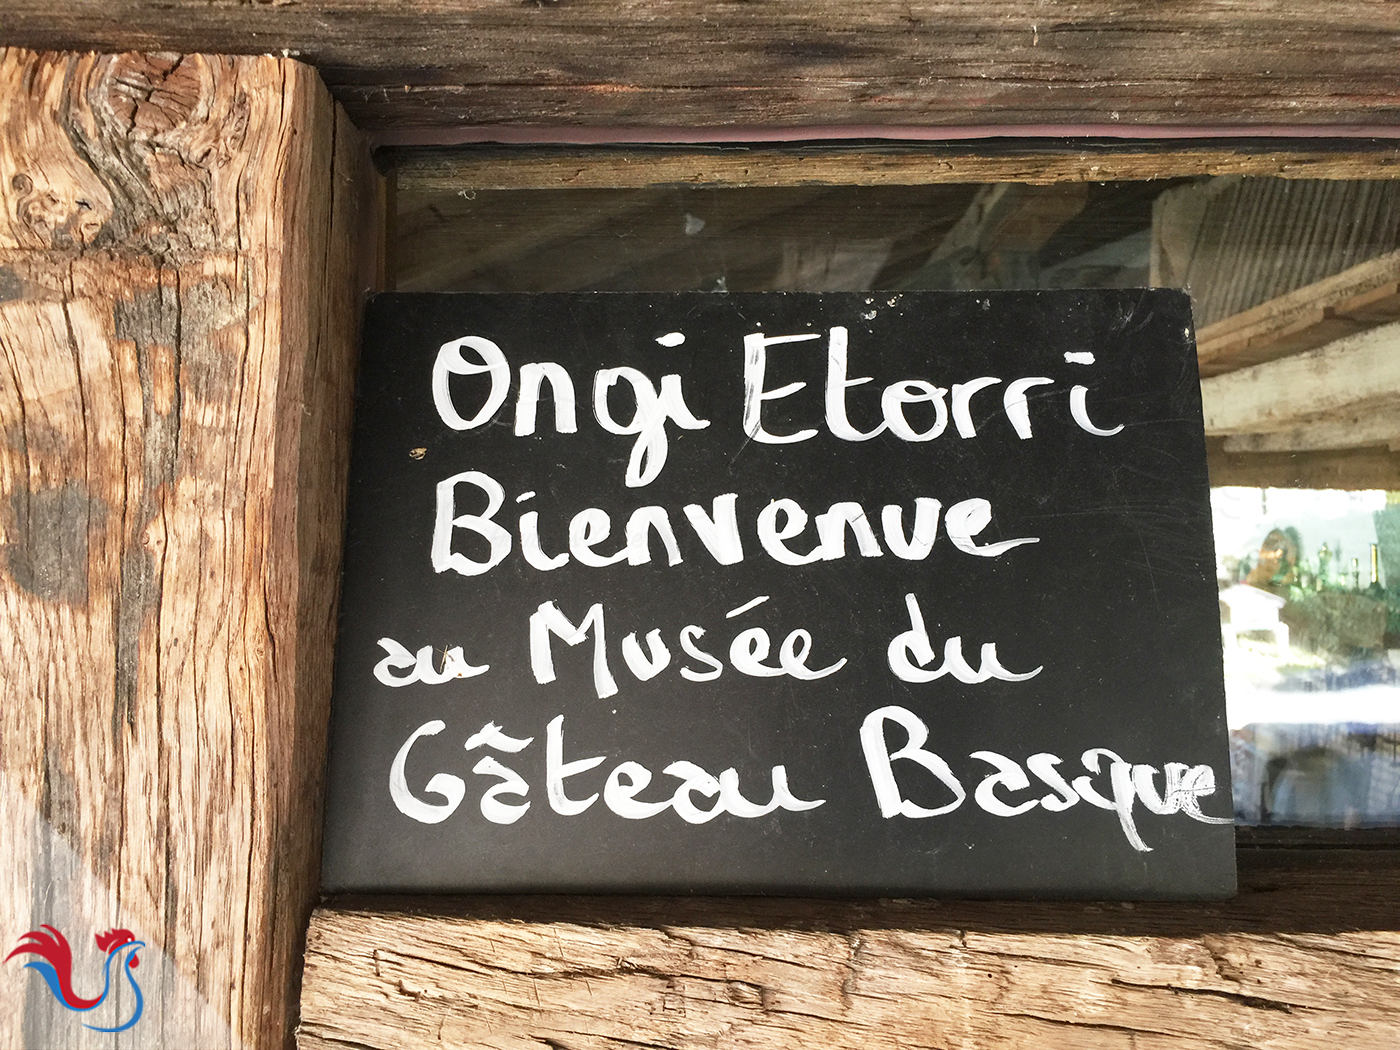 Ongi Etorri
Bienvenue
au Musée du
Gâteau Basque